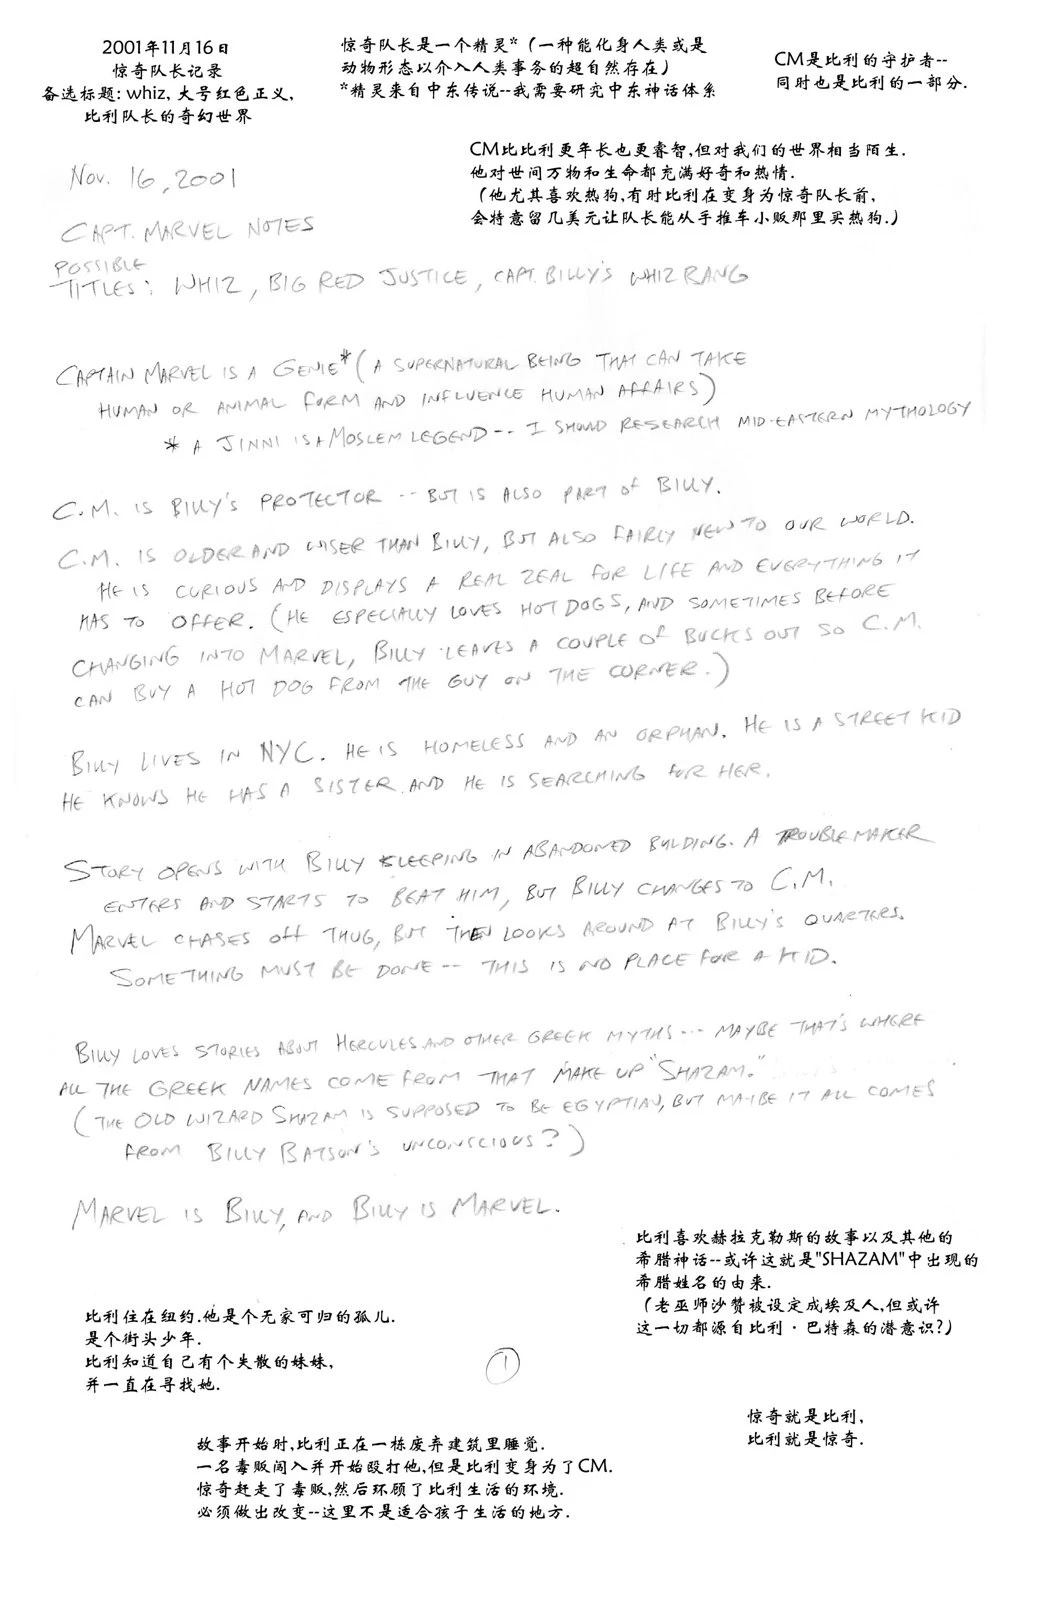 2001年11月16日
惊奇队长记录
备选标题: whiz, 大号红色正义,
比利队长的奇幻世界
惊奇队长是一个精灵*（一种能化身人类或是
动物形态以介入人类事务的超自然存在）
*精灵来自中东传说--我需要研究中东神话体系
CM是比利的守护者--
同时也是比利的一部分.
CM比比利更年长也更睿智,但对我们的世界相当陌生.
他对世间万物和生命都充满好奇和热情.
（他尤其喜欢热狗,有时比利在变身为惊奇队长前,
会特意留几美元让队长能从手推车小贩那里买热狗.）
NOV. 16, 2001
CAPT. MARVEL NOTES
POSSIBLE
TITLES: WHIZ, BIG RED JUSTICE, CAPT. BILLY'S WHIZ BANG
CAPTAIN MARVEL IS A GENIE* (A SUPERNATURAL BEING THAT CAN TAKE
HUMAN OR ANIMAL FORM AND INFLUENCE HUMAN AFFAIRS)
* A JINNI IS A MOSLEM LEGEND -- I SHOULD RESEARCH MID-EASTERN MYTHOLOGY
C.M. IS BILLY'S PROTECTOR -- BUT IS ALSO PART OF BILLY.
C.M. IS OLDER AND WISER THAN BILLY, BUT ALSO FAIRLY NEW TO OUR WORLD.
HE IS CURIOUS AND DISPLAYS A REAL ZEAL FOR LIFE AND EVERYTHING IT
HAS TO OFFER. (HE ESPECIALLY LOVES HOT DOGS, AND SOMETIMES BEFORE
CHANGING INTO MARVEL, BILLY LEAVES A COUPLE OF BUCKS OUT SO C.M.
CAN BUY A HOT DOG FROM THE GUY ON THE CORNER.)
BILLY LIVES IN NYC. HE IS HOMELESS AND AN ORPHAN. HE IS A STREET KID
HE KNOWS HE HAS A SISTER AND HE IS SEARCHING FOR HER.
STORY OPENS WITH BILLY SLEEPING IN ABANDONED BUILDING. A TROUBLEMAKER
ENTERS AND STARTS TO BEAT HIM, BUT BILLY CHANGES TO C.M.
MARVEL CHASES OFF THUG, BUT THEN LOOKS AROUND AT BILLY'S QUARTERS.
SOMETHING MUST BE DONE -- THIS IS NO PLACE FOR A KID.
BILLY LOVES STORIES ABOUT HERCULES AND OTHER GREEK MYTHS --- MAYBE THAT'S WHERE
ALL THE GREEK NAMES COME FROM THAT MAKE UP "SHAZAM."
(THE OLD WIZARD SHAZAM IS SUPPOSED TO BE EGYPTIAN, BUT MAYBE IT ALL COMES
FROM BILLY BATSON'S UNCONSCIOUS?)
MARVEL IS BILLY, AND BILLY IS MARVEL.
比利喜欢赫拉克勒斯的故事以及其他的
希腊神话--或许这就是"SHAZAM"中出现的
希腊姓名的由来.
（老巫师沙赞被设定成埃及人,但或许
这一切都源自比利·巴特森的潜意识?）
比利住在纽约.他是个无家可归的孤儿.
是个街头少年.
比利知道自己有个失散的妹妹,
并一直在寻找她.
1
惊奇就是比利,
比利就是惊奇.
故事开始时,比利正在一栋废弃建筑里睡觉.
一名毒贩闯入并开始殴打他,但是比利变身为了CM.
惊奇赶走了毒贩,然后环顾了比利生活的环境.
必须做出改变--这里不是适合孩子生活的地方.